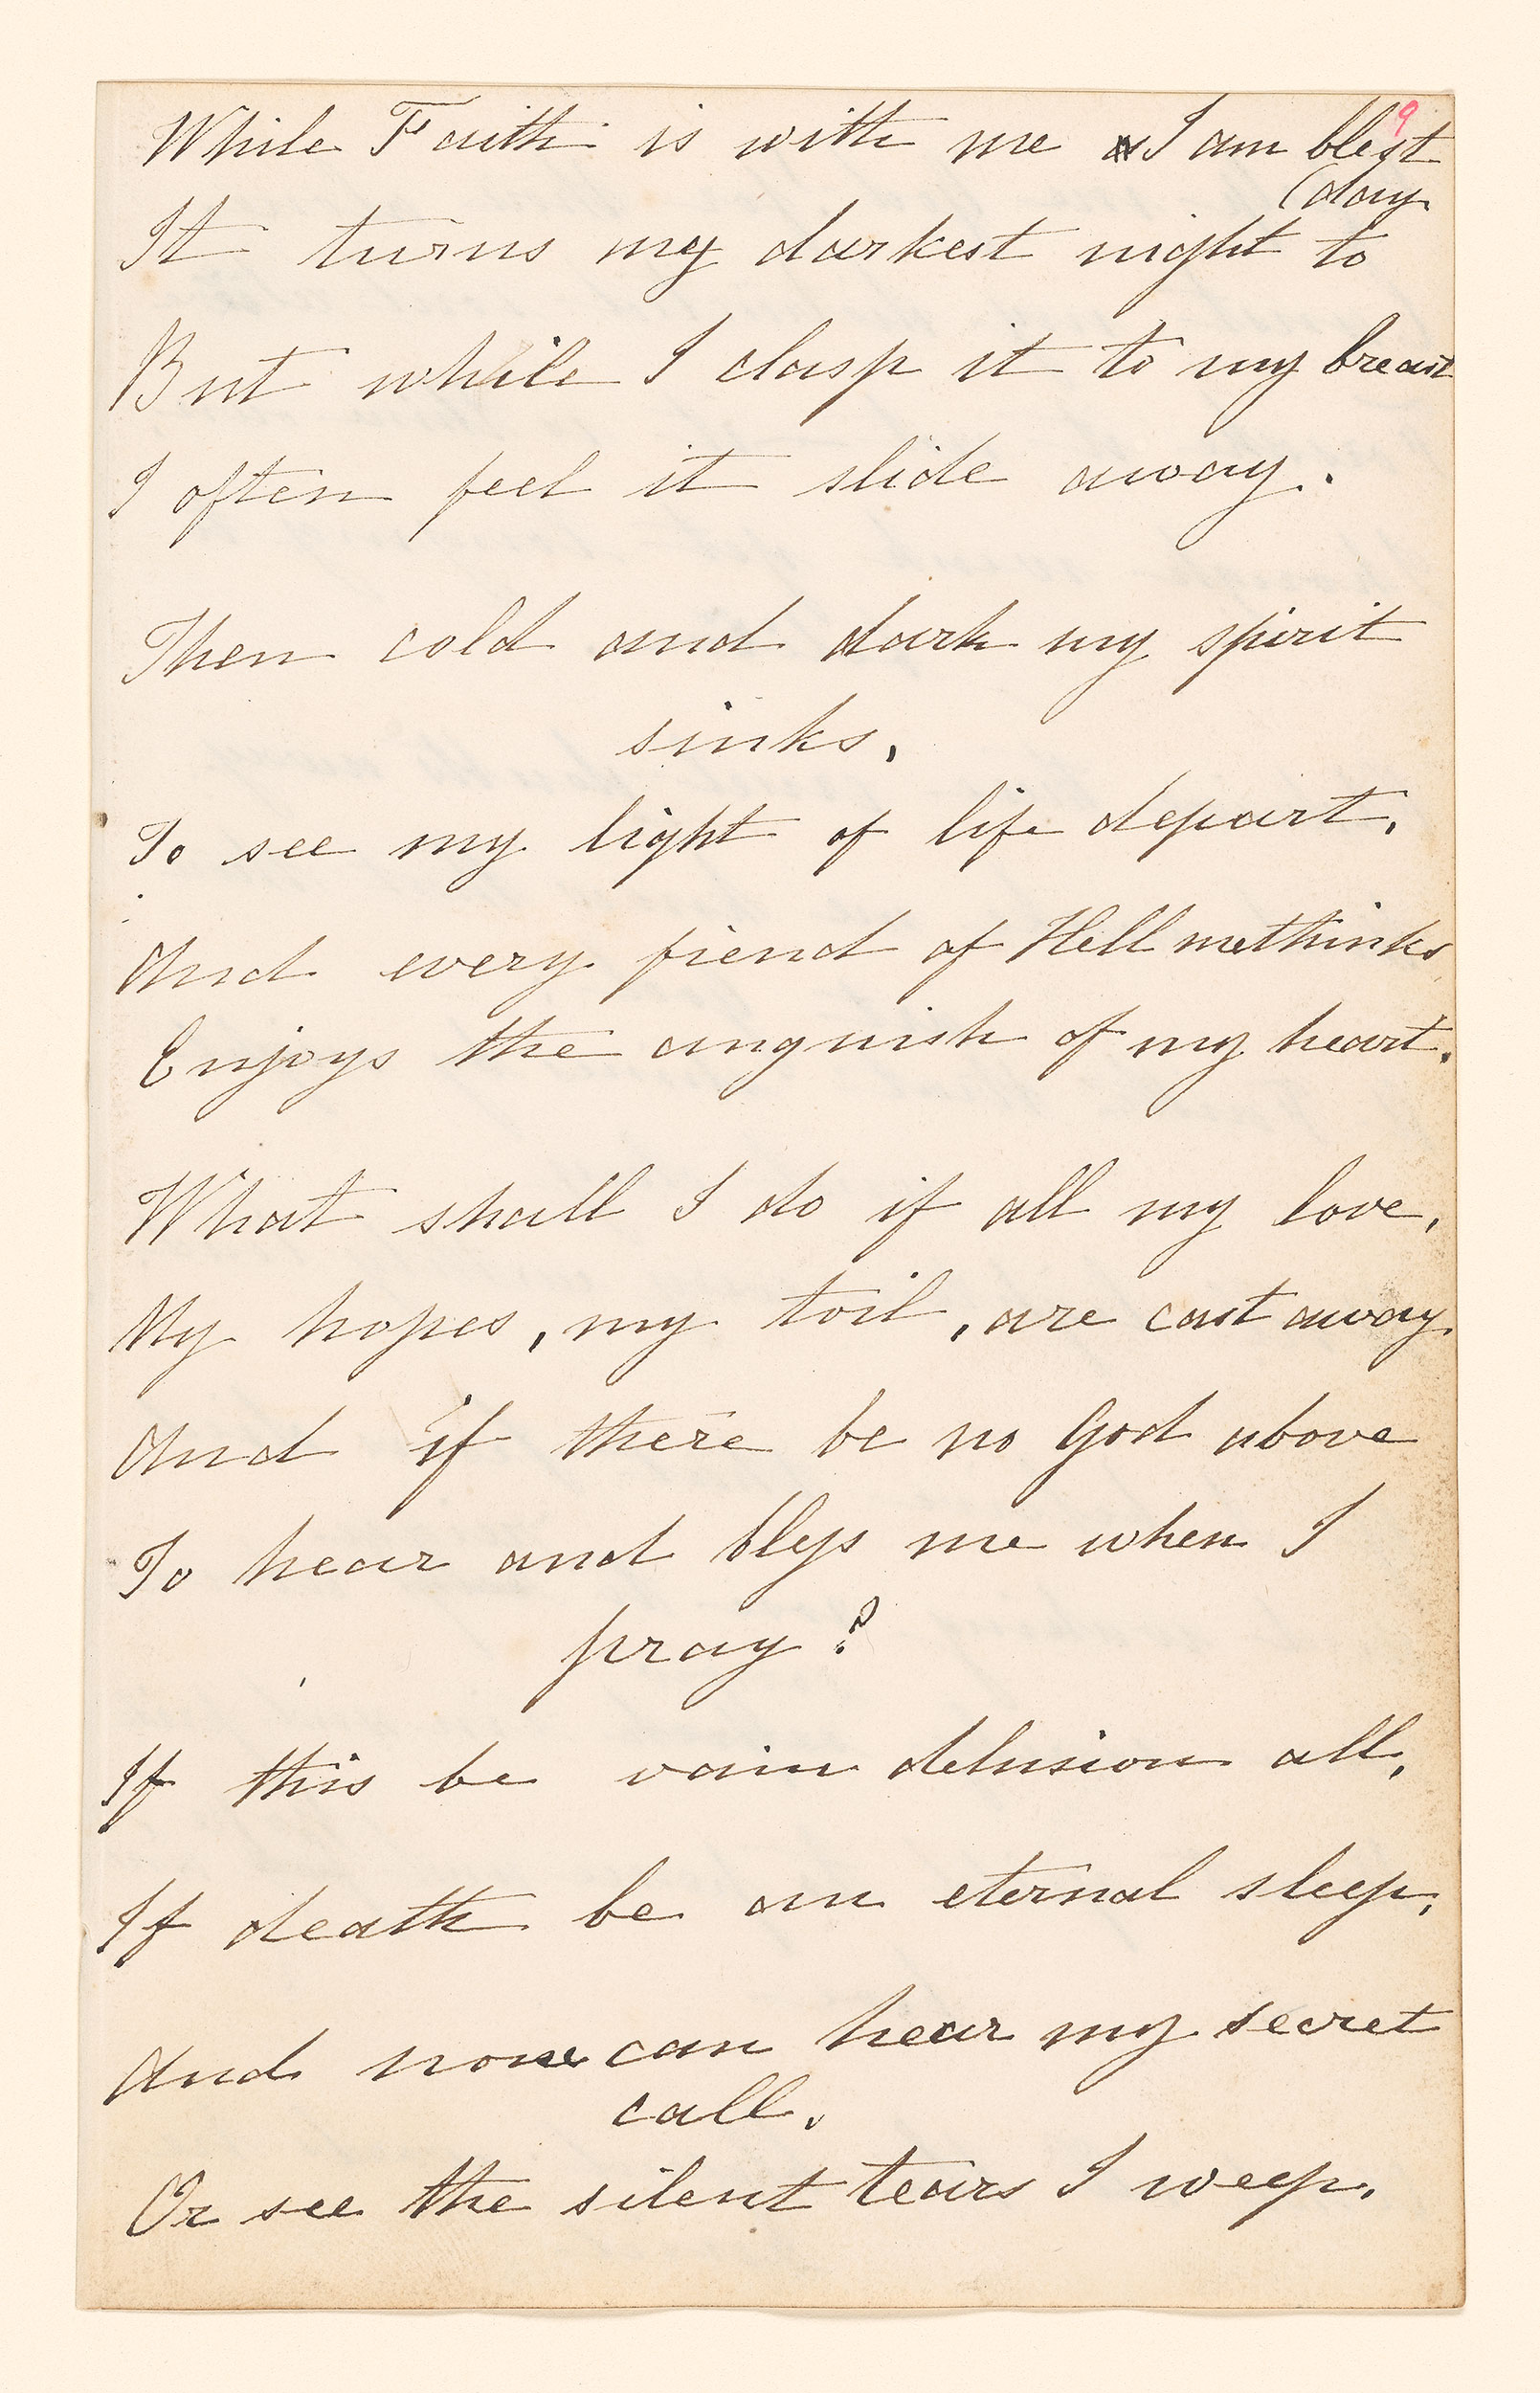 9
While Faith is with me I am blest
(day
It turns my darkest night to
But while I clasp it to my breast
I often feel it slide away.
Then cold and dark my spirit
sinks,
To see my light of life depart,
And every fiend of Hell methinks
Enjoys the anguish of my heart.
What shall I do if all my love,
My hopes, my toil, are cast away
And if there be no God above
To hear and bless me when I
pray?
If this be vain delusion all,
If death be an eternal sleep,
And none can hear my secret
call,
Or see the silent tears I weep.